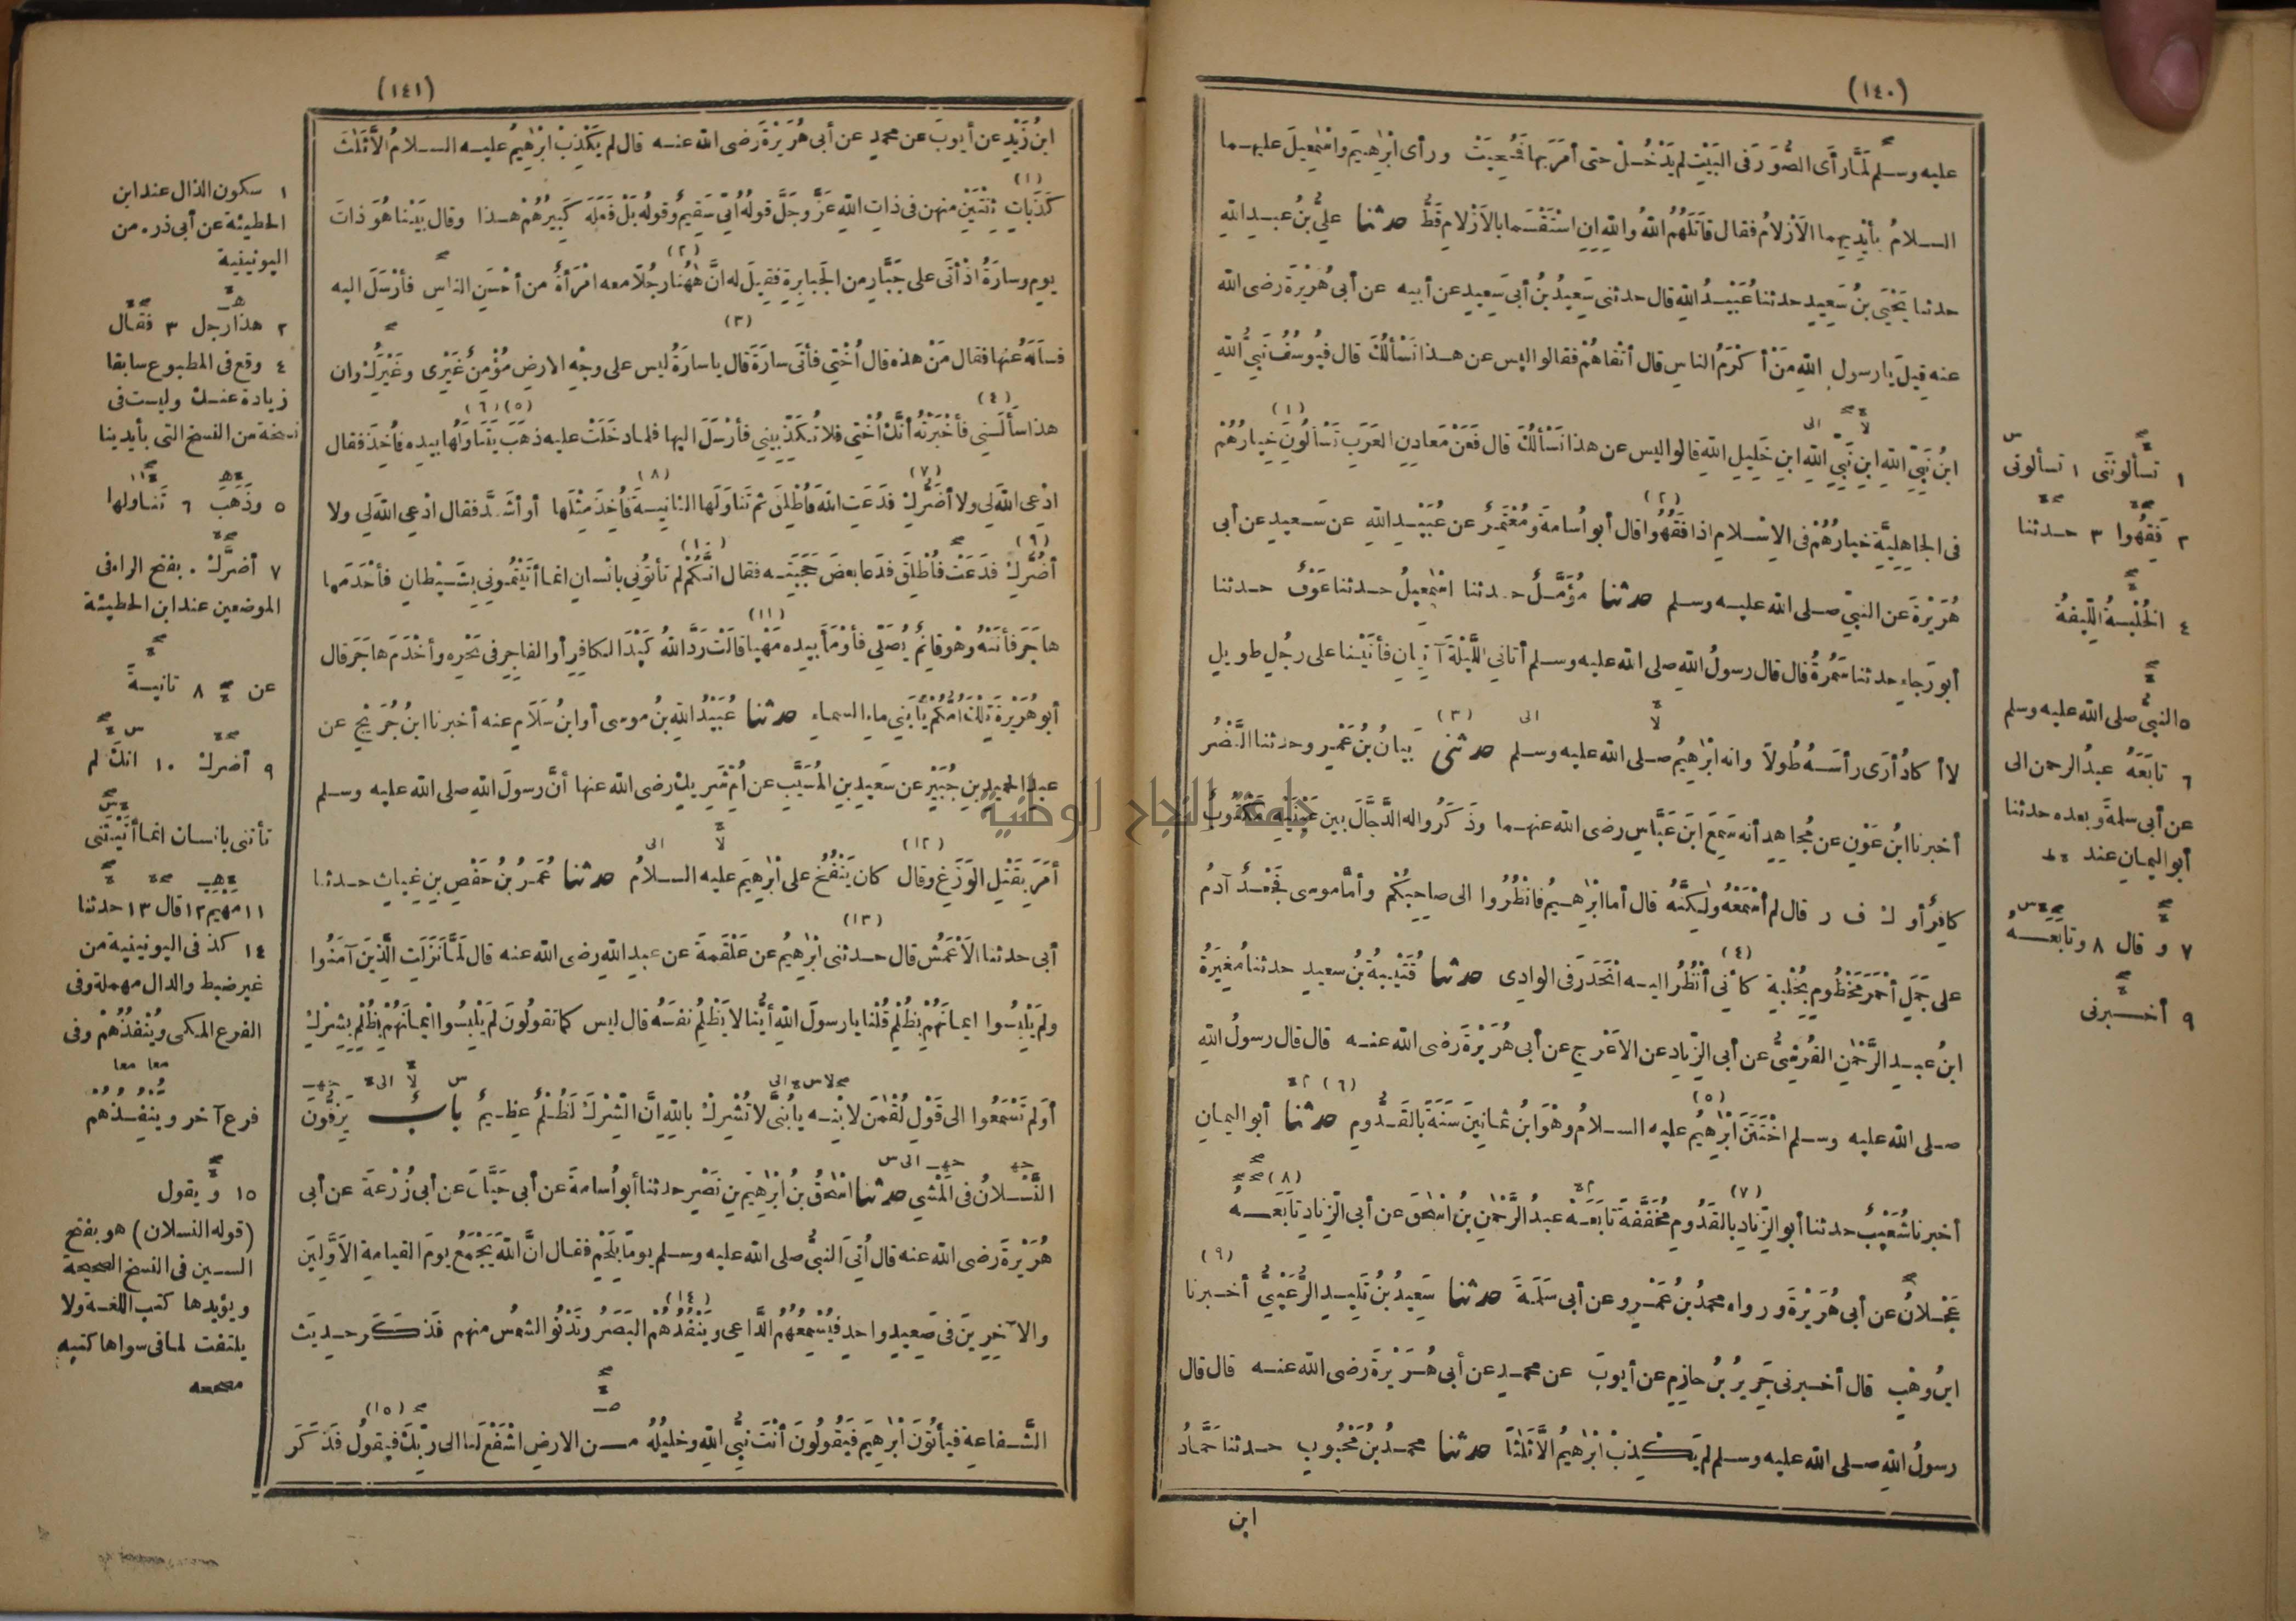 (١٤٠)
عليه وسلم لَمَّا رَأَى الصُّوَرَ فى البَيْتِ لم يَدْخُلْ حتى أَمَرَ بها فَمُحِيَتْ ورأى إبْرٰهِيمَ وإسْمٰعِيلَ عليهما
السلامُ بأَيْدِيهِما الأَزْلَامُ فقال قَاتَلَهُمُ اللهُ واللهِ إنِ اسْتَقْسَما بالأَزْلَامِ قَطُّ حدثنا عليُّ بنُ عبدِ اللهِ
حدثنا يَحْيَى بنُ سَعِيدٍ حدثنا عُبَيْدُ اللهِ قال حدثنى سَعِيدُ بنُ أبى سَعِيدٍ عن أبيه عن أبى هُرَيْرَةَ رضى الله
عنه قِيلَ يا رسولَ اللهِ مَنْ أَكْرَمُ الناسِ قال أَتْقَاهُمْ فقالوا ليس عن هذا نَسْأَلُكَ قال فَيُوسُفُ نَبِيُّ اللهِ
ابنُ نَبِيِّ اللهِ ابنِ نَبِيِّ اللهِ ابنِ خَلِيلِ اللهِ قالوا ليس عن هذا نَسْأَلُكَ قال فَعَنْ مَعَادِنِ العَرَبِ تَسْأَلُونَ (١) خِيارُهُمْ
فى الجاهِلِيَّةِ خيارُهُمْ فى الإسْلامِ إذا فَقُهُوا (٢) قال أبو أُسامةَ ومُعْتَمِرٌ عن عُبَيْدِ اللهِ عن سَعيدٍ عن أبى
هُرَيْرَةَ عن النبيِّ صلى الله عليه وسلم حدثنا مُؤَمَّلٌ حدثنا إسْمٰعِيلُ حدثنا عَوْفٌ حدثنا
أبو رَجَاءٍ حدثنا سَمُرَةُ قال قال رسولُ اللهِ صلى الله عليه وسلم أتاني اللَّيْلَةَ آتِيانِ فأَتَيْنا على رجُلٍ طويلٍ
لا أكادُ أَرَى رأسَهُ طُولًا وإنه إبْرٰهِيمُ صلى الله عليه وسلم حدثنى (٣) بَيانُ بنُ عَمْرٍو حدثنا النَّضْرُ
أخبرنا ابنُ عَوْنٍ عن مُجاهِدٍ أنه سَمِعَ ابنَ عَبَّاسٍ رضى الله عنهما وذَكَرُوا له الدَّجَّالَ بين عَيْنَيْهِ مَكْتُوبٌ
كافِرٌ أو ك ف ر قال لم أَسْمَعْهُ ولٰكِنَّهُ قال أما إبْرٰهِيمُ فانْظُرُوا الى صاحِبِكُمْ وأمَّا موسى فَجَعْدٌ آدمُ
على جَمَلٍ أَحْمَرَ مَخْطُومٍ بِخُلْبةٍ (٤) كأنّى أَنْظُرُ اليه انْحَدَرَ فى الوادِى حدثنا قُتَيْبةُ بنُ سعيدٍ حدثنا مُغِيرَةُ
ابنُ عبدِ الرَّحْمٰنِ القُرَشِيُّ عن أبى الزِّنادِ عن الأعْرَجِ عن أبى هُرَيْرَةَ رضى الله عنه قال قال رسولُ اللهِ
صلى الله عليه وسلم اخْتَتَنَ إبْرٰهِيمُ (٥) عليه السلامُ وهْوَ ابنُ ثمانِينَ سَنَةً بالقَدُّومِ حدثنا (٦) أبو اليمانِ
أخبرنا شُعَيْبٌ حدثنا أبو الزِّنادِ بالقَدُومِ (٧) مُخَفَّفةً تابَعَهُ عبدُ الرَّحْمٰنِ بنُ إسْحٰقَ عن أبى الزِّنادِ تابَعَهُ (٨)
عَجْلانُ عن أبى هُرَيْرَةَ ورواه محمدُ بنُ عَمْرٍو عن أبى سَلَمةَ حدثنا سَعِيدُ بنُ تَلِيدٍ الرُّعَيْنِيُّ أخبرنا (٩)
ابنُ وهْبٍ قال أخبرنى جَرِيرُ بنُ حازِمٍ عن أيوبَ عن محمدٍ عن أبى هُرَيْرَةَ رضى الله عنه قال قال
رسولُ اللهِ صلى الله عليه وسلم لم يَكْذِبْ إبْرٰهِيمُ إلَّا ثَلٰثًا حدثنا محمدُ بنُ مَحْبُوبٍ حدثنا حَمَّادُ
ابن
١ تسألونَنِى ١ تسألونى
٢ فَقِهُوا ٣ حدثنا
٤ الخُلْبةُ اللِّيفةُ
٥ النبيُّ صلى الله عليه وسلم
٦ تابَعَهُ عبدُ الرحمن الى
عن أبى سلمةَ وبعده حدثنا
أبو اليمان عند
٧ و قال ٨ وتابَعَهُ
٩ أخبرنى
(١٤١)
ابنُ زَيْدٍ عن أيوبَ عن محمدٍ عن أبى هُرَيْرَةَ رضى الله عنه قال لم يَكْذِبْ إبْرٰهِيمُ عليه السلامُ إلَّا ثَلٰثَ
كَذَبَاتٍ (١) ثِنْتَيْنِ منهن فى ذاتِ اللهِ عَزَّ وجَلَّ قولُهُ إنِّى سَقِيمٌ وقولُهُ بَلْ فَعَلَهُ كَبِيرُهُمْ هذا وقال بَيْنا هُوَ ذاتَ
يومٍ وسارَةُ إذْ أَتَى على جَبَّارٍ من الجَبابِرةِ فقِيلَ له إنَّ هٰهُنا رجُلًا (٢) معه امْرَأةٌ من أَحْسَنِ الناسِ فأَرْسَلَ اليه
فسأَلَهُ عنها فقال مَنْ هذه قال أُخْتِى فأتَى سارَةَ قال (٣) يا سارَةُ ليس على وجْهِ الارضِ مُؤْمِنٌ غَيْرِى وغَيْرُكِ وإن
هذا سأَلَنِى (٤) فأَخْبَرْتُهُ أَنَّكِ أُخْتِى فلا تُكَذِّبِينِى فأَرْسَلَ اليها فلما دخَلَتْ عليه ذهَبَ (٥) يَتَناوَلُها (٦) بيدِه فأُخِذَ فقال
ادْعِى اللهَ لِى ولا أَضُرُّكِ (٧) فدَعَتِ اللهَ فأُطْلِقَ ثم تَناوَلَها الثانيةَ (٨) فأُخِذَ مِثْلَها أو أَشَدَّ فقال ادْعِى اللهَ لِى ولا
أَضُرُّكِ (٩) فدَعَتْ فأُطْلِقَ فدَعا بعضَ حَجَبَتِه فقال إنَّكُمْ لم تأتُونِى (١٠) بإنْسانٍ إنما أتَيْتُمُونِى بشَيْطانٍ فأَخْدَمَها
هاجَرَ فأتَتْهُ وهْوَ قائِمٌ يُصَلِّى فأَوْمَأَ بيدِه مَهْيَا (١١) قالَتْ رَدَّ اللهُ كَيْدَ الكافِرِ أو الفاجِرِ فى نَحْرِه وأخْدَمَ هاجَرَ قال
أبو هُرَيْرَةَ تِلْكَ أُمُّكُمْ يا بَنِى ماءِ السماءِ حدثنا عُبَيْدُ اللهِ بنُ موسى أو ابنُ سَلَامٍ عنه أخبرنا ابنُ جُرَيْجٍ عن
عبدِ الحميدِ بنِ جُبَيْرٍ عن سَعِيدِ بنِ المُسَيَّبِ عن أُمِّ شَرِيكٍ رضى الله عنها أَنَّ رسولَ اللهِ صلى الله عليه وسلم
أمَرَ بقَتْلِ الوَزَغِ وقال (١٢) كان يَنْفُخُ على إبْرٰهِيمَ عليه السلامُ حدثنا عُمَرُ بنُ حَفْصِ بنِ غِياثٍ حدثنا
أبى حدثنا الأَعْمَشُ قال حدثنى (١٣) إبْرٰهِيمُ عن عَلْقَمةَ عن عبدِ اللهِ رضى الله عنه قال لَمَّا نَزَلَتِ الَّذِينَ آمَنُوا
ولم يَلْبِسُوا إيمانَهُمْ بظُلْمٍ قُلْنا يا رسولَ اللهِ أيُّنا لا يَظْلِمُ نفسَهُ قال ليس كما تقولُونَ لم يَلْبِسُوا إيمانَهُمْ بظُلْمٍ بِشِرْكٍ
أوَلم تَسْمَعُوا الى قَوْلِ لُقْمٰنَ لابْنِه يا بُنَىَّ لا تُشْرِكْ باللهِ إنَّ الشِّرْكَ لَظُلْمٌ عظيمٌ بابٌ يَزِفُّونَ
النَّسَلانُ فى المَشْيِ حدثنا إسْحٰقُ بنُ إبْرٰهِيمَ بنِ نَصْرٍ حدثنا أبو أُسامةَ عن أبى حَيَّانَ عن أبى زُرْعةَ عن أبى
هُرَيْرَةَ رضى الله عنه قال أُتِىَ النبيُّ صلى الله عليه وسلم يومًا بلَحْمٍ فقال إنَّ اللهَ يَجْمَعُ يومَ القيامةِ الأَوَّلِينَ
والآخِرِينَ فى صَعِيدٍ واحدٍ فيُسْمِعُهُمُ الدَّاعِى ويَنْفُذُهُمُ (١٤) البَصَرُ وتَدْنُو الشمسُ منهم فذكَرَ حديثَ
الشَّفاعةِ فيأتُونَ إبْرٰهِيمَ فيَقُولُونَ أَنْتَ نبيُّ اللهِ وخليلُهُ من الارضِ اشْفَعْ لنا الى رَبِّكَ فيقولُ (١٥) فذكَرَ
١ سكون الذال عند ابن
الحطيئة عن أبى ذر. من
اليونينية
٢ هذا رجل ٣ فقال
٤ وقع فى المطبوع سابقا
زيادة عنك وليست فى
نسخة من النسخ التى بأيدينا
٥ وذَهَبَ ٦ تَنَاولها
٧ أضرَّك. بفتح الراء فى
الموضعين عند ابن الحطيئة
عن ٨ ثانيةً
٩ أضرك ١٠ انكَ لم
تأتنى بانسان انما أتَيْتَنى
١١ مَهْيَم ١٢ قال ١٣ حدثنا
١٤ كذا فى اليونينية من
غير ضبط والدال مهملة وفى
الفرع المكى ويُنْفِذُهُمْ وفى
معا معا
فرع آخر وينفذهم
١٥ و يقول
(قوله النسلان) هو بفتح
السين فى النسخ الصحيحة
ويؤيدها كتب اللغة ولا
يلتفت لما فى سواها كتبه
مصححه
جامعة النجاح الوطنية